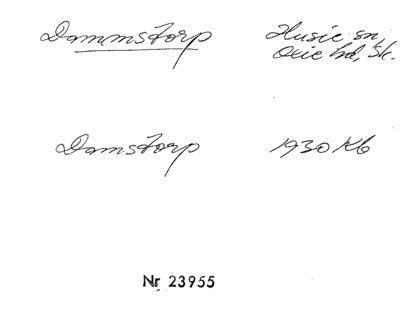 Dammstorp Husie sn,
Oxie hd, Sk.
Damstorp 1930 Kb
Nr 23955